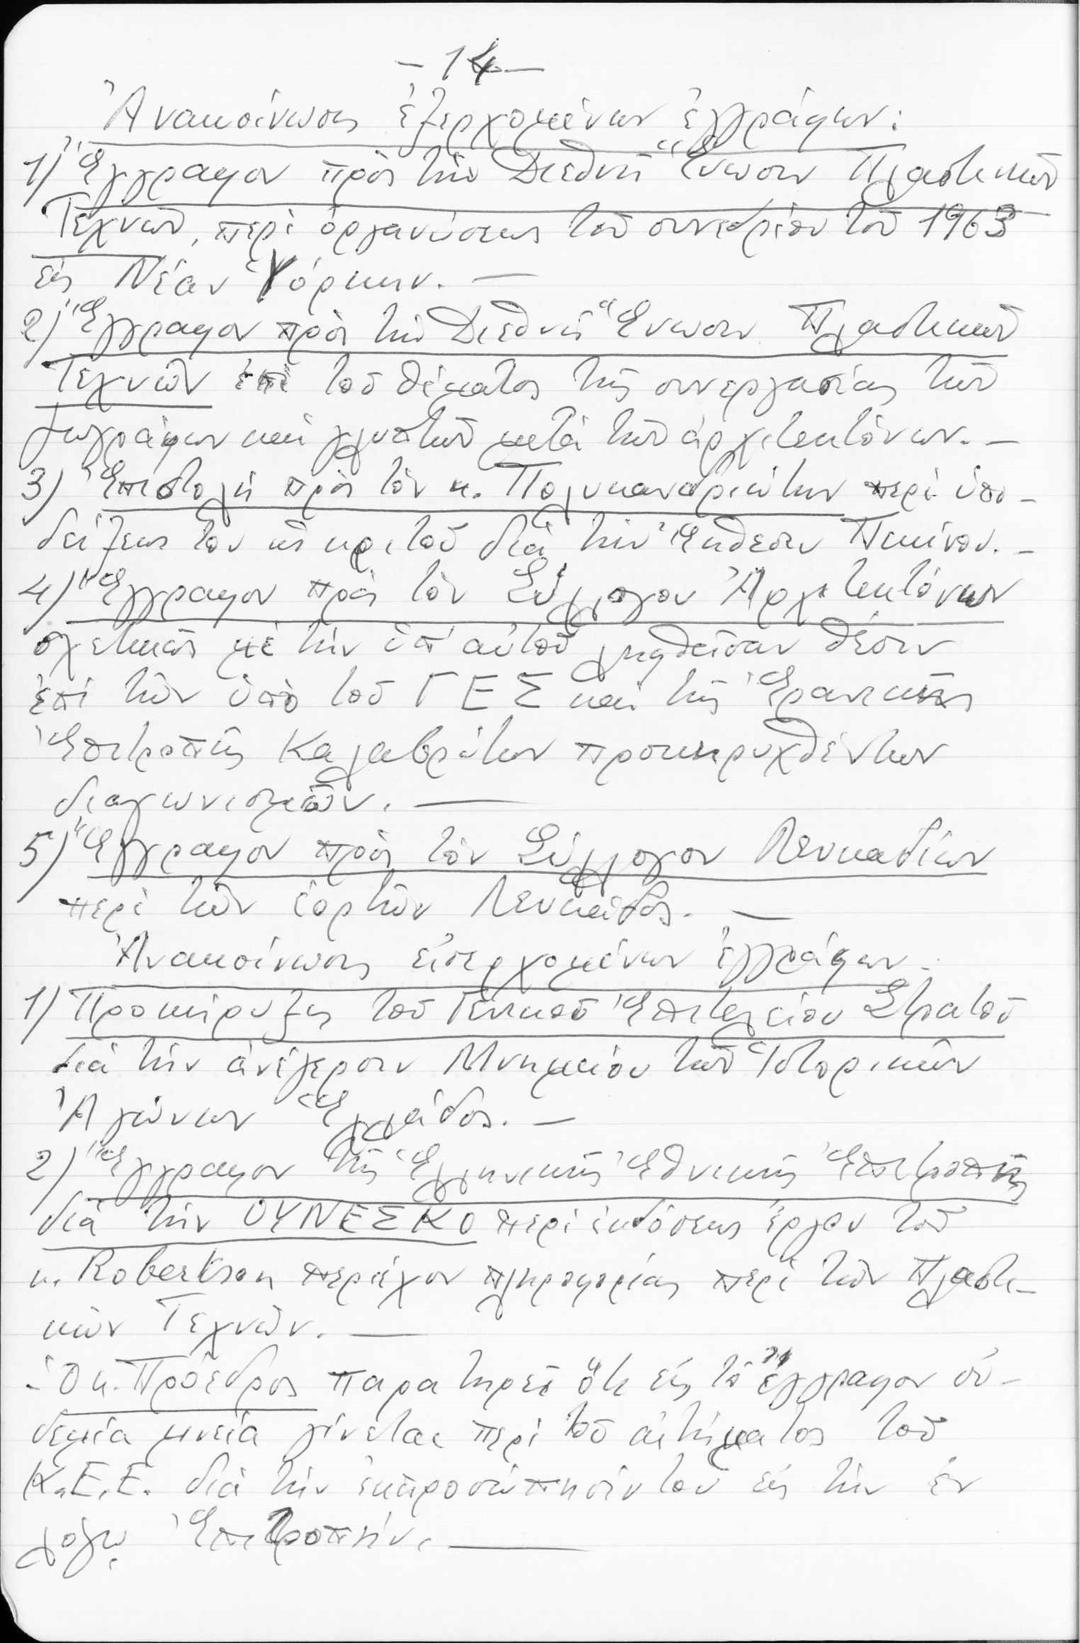 - 14 -
Ἀνακοίνωσις ἐξερχομένων ἐγγράφων:
1) Ἔγγραφον πρὸς τὴν Διεθνῆ Ἕνωσιν Πλαστικῶν
Τεχνῶν, περὶ ὀργανώσεως τοῦ συνεδρίου τοῦ 1963
εἰς Νέαν Ὑόρκην. —
2) Ἔγγραφον πρὸς τὴν Διεθνῆ Ἕνωσιν Πλαστικῶν
Τεχνῶν ἐπὶ τοῦ θέματος τῆς συνεργασίας τῶν
ζωγράφων καὶ γλυπτῶν μετὰ τῶν ἀρχιτεκτόνων. —
3) Ἐπιστολὴ πρὸς τὸν κ. Πολυκανδριώτην περὶ ὑπο-
δείξεώς του ὡς κριτοῦ διὰ τὴν Ἔκθεσιν Πεκίνου. —
4) Ἔγγραφον πρὸς τὸν Σύλλογον Ἀρχιτεκτόνων
σχετικῶς μὲ τὴν ὑπ' αὐτοῦ ληφθεῖσαν θέσιν
ἐπὶ τῶν ὑπὸ τοῦ ΓΕΣ καὶ τῆς Ἐρανικῆς
Ἐπιτροπῆς Καλαβρύτων προκηρυχθέντων
διαγωνισμῶν. —
5) Ἔγγραφον πρὸς τὸν Σύλλογον Λευκαδίων
περὶ τῶν ἑορτῶν Λευκάδος. —
Ἀνακοίνωσις εἰσερχομένων ἐγγράφων.
1) Προκήρυξις τοῦ Γενικοῦ Ἐπιτελείου Στρατοῦ
διὰ τὴν ἀνέγερσιν Μνημείου τῶν Ἱστορικῶν
Ἀγώνων Ἑλλάδος. —
2) Ἔγγραφον τῆς Ἑλληνικῆς Ἐθνικῆς Ἐπιτροπῆς
διὰ τὴν ΟΥΝΕΣΚΟ περὶ ἐκδόσεως ἔργου τοῦ
κ. Robertson περιέχον πληροφορίας περὶ τῶν Πλαστι-
κῶν Τεχνῶν. —
- Ὁ κ. Πρόεδρος παρατηρεῖ ὅτι εἰς τὸ ἔγγραφον οὐ-
δεμία μνεία γίνεται περὶ τοῦ αἰτήματος τοῦ
Κ.Ε.Ε. διὰ τὴν ἐκπροσώπησίν του εἰς τὴν ἐν
λόγῳ Ἐπιτροπήν. —